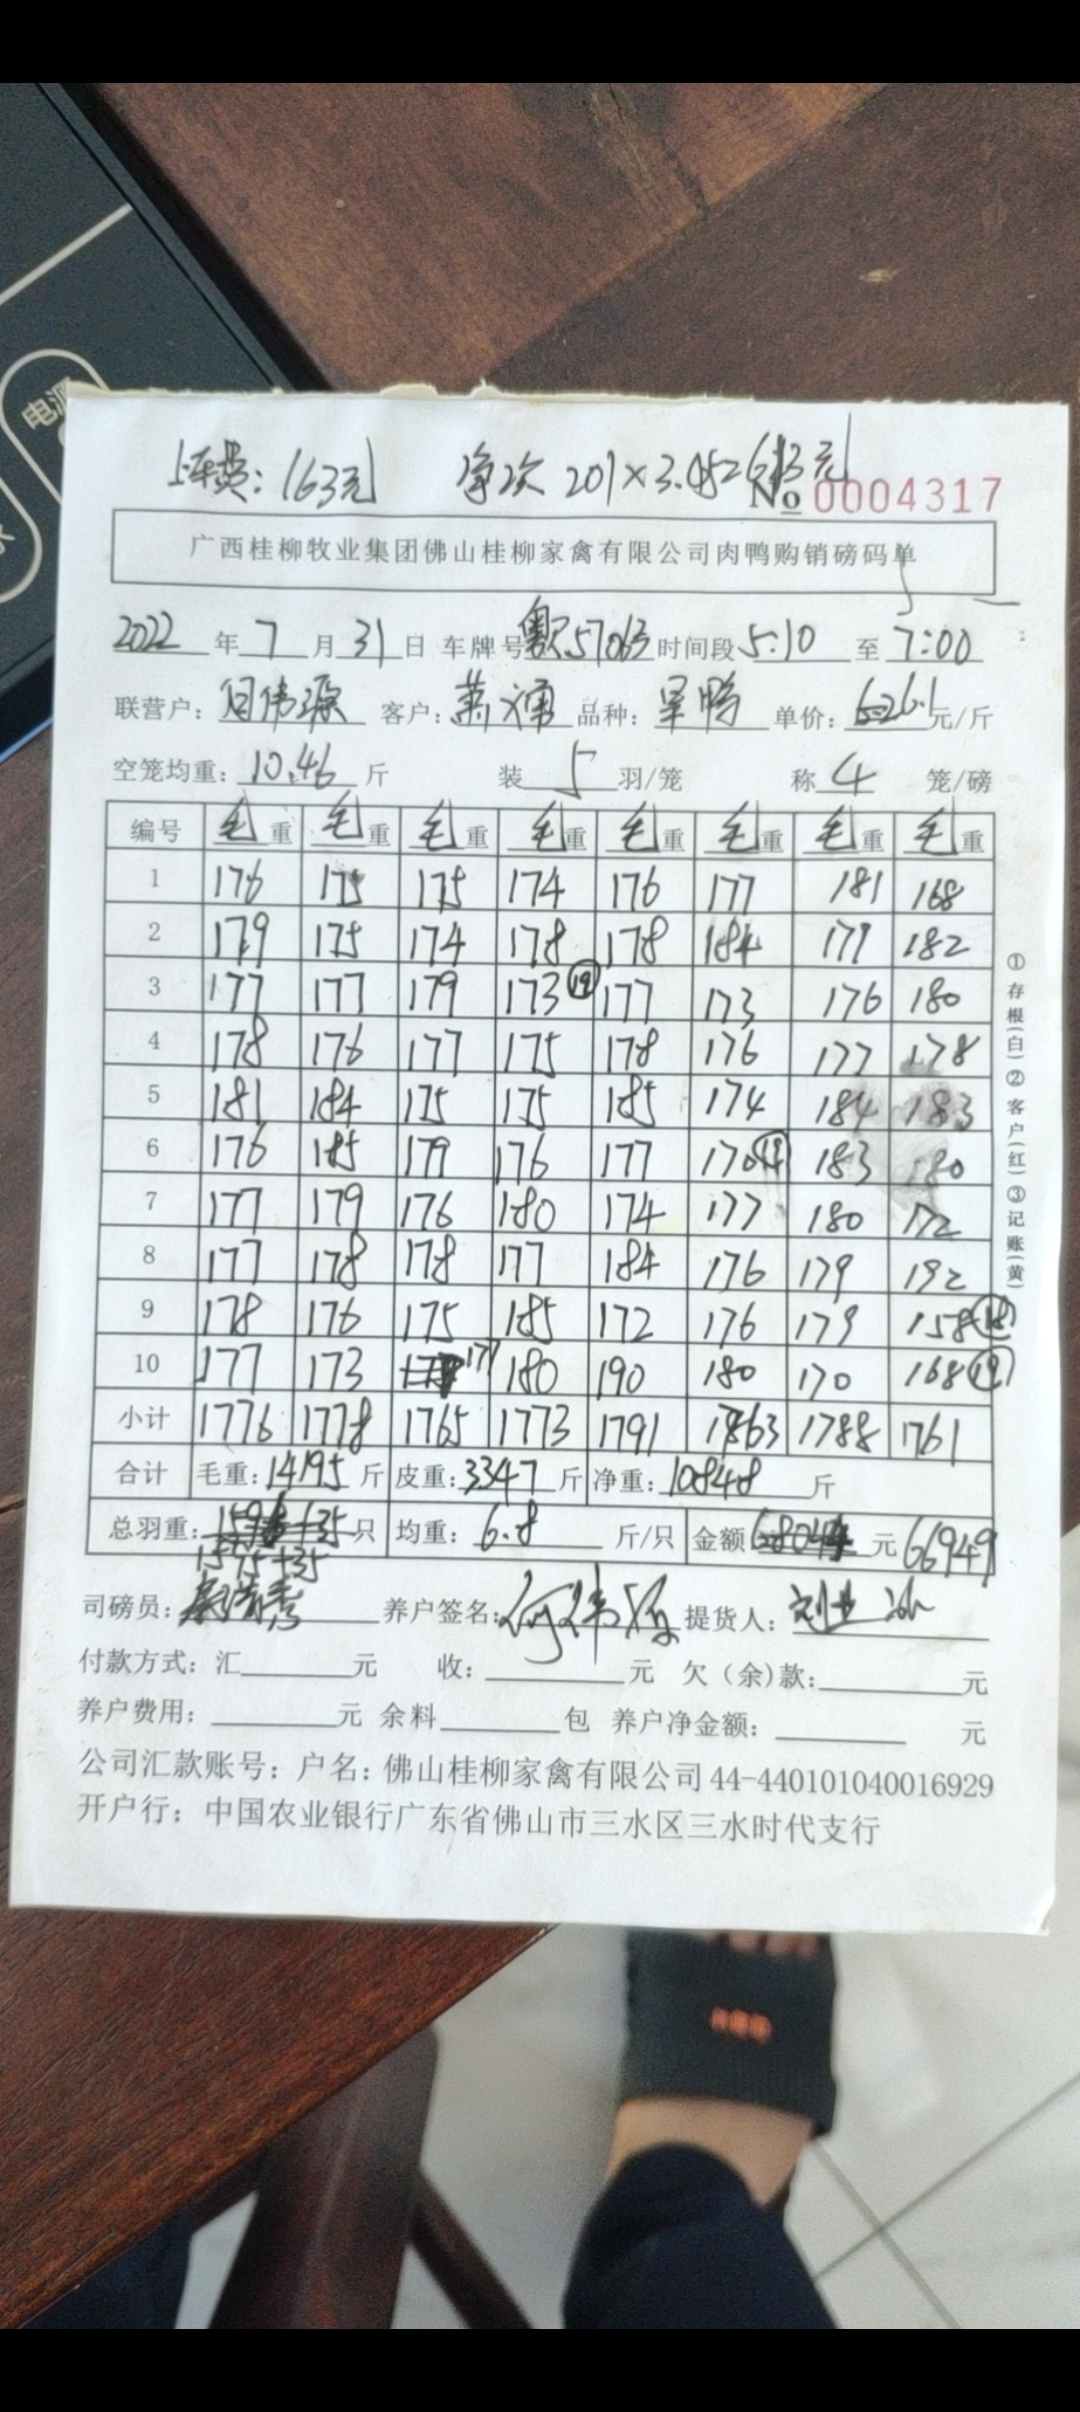 电源
上车费：163元 净次 201×3.45=693元
No 0004317
广西桂柳牧业集团佛山桂柳家禽有限公司肉鸭购销磅码单
2022 年 7 月 31 日 车牌号 57063 时间段 5:10 至 7:00
联营户： 伟源 客户：萧 品种： 鸭 单价： 6.1 元/斤
空笼均重：10.46 斤 装 5 羽/笼 称 4 笼/磅
编号 毛重 毛重 毛重 毛重 毛重 毛重 毛重 毛重
1 176 175 175 174 176 177 181 168
2 179 175 174 178 178 184 177 182
3 177 177 179 173 ⑲ 177 173 176 180
4 178 176 177 175 178 176 177 178
5 181 184 175 175 185 174 184 183
6 176 185 179 176 177 170 ⑲ 183 180
7 177 179 176 180 174 177 180 172
8 177 178 178 177 184 176 179 192
9 178 176 175 185 172 176 179 158 ⑱
10 177 173 177 180 190 180 170 168 ⑲
小计 1776 1778 1765 1773 1791 1763 1788 1761
合计 毛重：14195 斤 皮重：3347 斤 净重：10848 斤
总羽重： +35 只 均重：6.8 斤/只 金额 元 66949
1575+35
司磅员： 养户签名：何伟源 提货人：
付款方式：汇 元 收： 元 欠（余）款： 元
养户费用： 元 余料 包 养户净金额： 元
公司汇款账号：户名：佛山桂柳家禽有限公司 44-440101040016929
开户行：中国农业银行广东省佛山市三水区三水时代支行
①存根(白)②客户(红)③记账(黄)